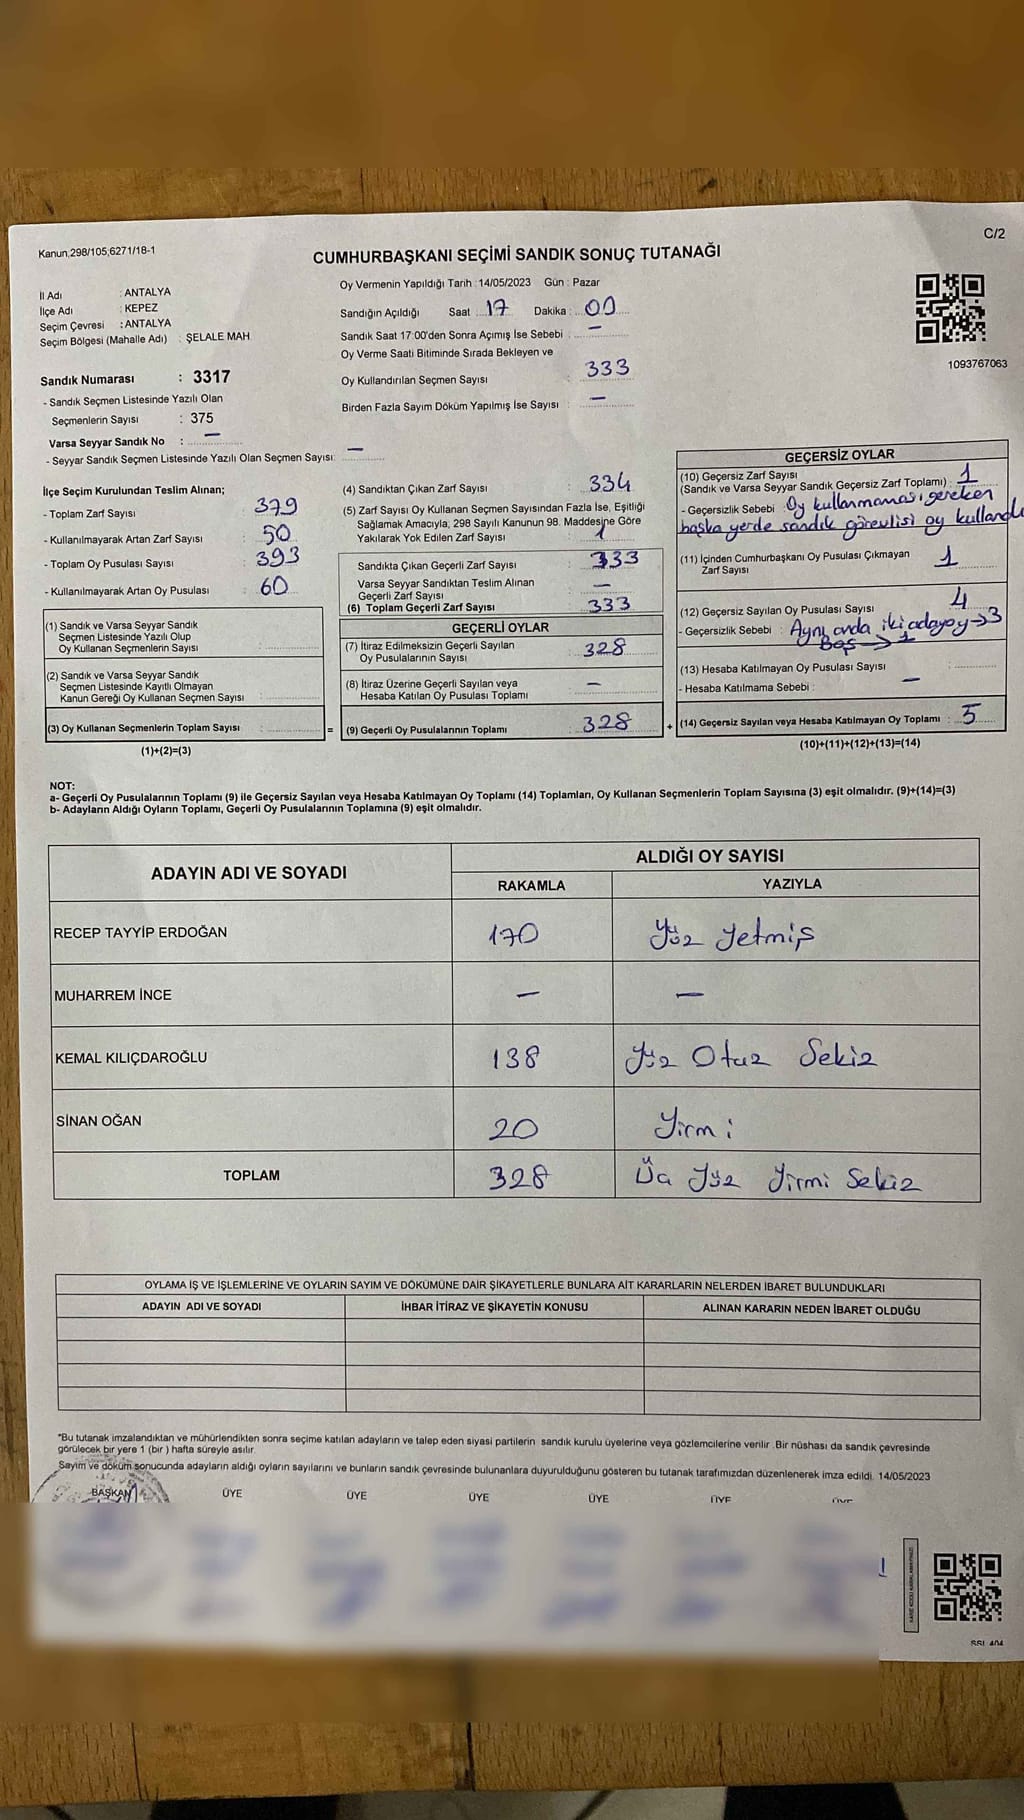 Kanun,298/105;6271/18-1
C/2
CUMHURBAŞKANI SEÇİMİ SANDIK SONUÇ TUTANAĞI
İl Adı : ANTALYA
İlçe Adı : KEPEZ
Seçim Çevresi : ANTALYA
Seçim Bölgesi (Mahalle Adı) : ŞELALE MAH
Sandık Numarası : 3317
- Sandık Seçmen Listesinde Yazılı Olan
Seçmenlerin Sayısı : 375
Varsa Seyyar Sandık No : —
- Seyyar Sandık Seçmen Listesinde Yazılı Olan Seçmen Sayısı: —
Oy Vermenin Yapıldığı Tarih : 14/05/2023 Gün : Pazar
Sandığın Açıldığı Saat : 17 Dakika : 00
Sandık Saat 17:00'den Sonra Açımış İse Sebebi : —
Oy Verme Saati Bitiminde Sırada Bekleyen ve
Oy Kullandırılan Seçmen Sayısı : 333
Birden Fazla Sayım Döküm Yapılmış İse Sayısı : —
1093767063
İlçe Seçim Kurulundan Teslim Alınan;
- Toplam Zarf Sayısı : 379
- Kullanılmayarak Artan Zarf Sayısı : 50
- Toplam Oy Pusulası Sayısı : 393
- Kullanılmayarak Artan Oy Pusulası : 60
(1) Sandık ve Varsa Seyyar Sandık
Seçmen Listesinde Yazılı Olup
Oy Kullanan Seçmenlerin Sayısı :
(2) Sandık ve Varsa Seyyar Sandık
Seçmen Listesinde Kayıtlı Olmayan
Kanun Gereği Oy Kullanan Seçmen Sayısı :
(3) Oy Kullanan Seçmenlerin Toplam Sayısı : =
(1)+(2)=(3)
(4) Sandıktan Çıkan Zarf Sayısı : 334
(5) Zarf Sayısı Oy Kullanan Seçmen Sayısından Fazla İse, Eşitliği
Sağlamak Amacıyla, 298 Sayılı Kanunun 98. Maddesine Göre
Yakılarak Yok Edilen Zarf Sayısı : 1
Sandıkta Çıkan Geçerli Zarf Sayısı : 333
Varsa Seyyar Sandıktan Teslim Alınan
Geçerli Zarf Sayısı : —
(6) Toplam Geçerli Zarf Sayısı : 333
GEÇERLİ OYLAR
(7) İtiraz Edilmeksizin Geçerli Sayılan
Oy Pusulalarının Sayısı : 328
(8) İtiraz Üzerine Geçerli Sayılan veya
Hesaba Katılan Oy Pusulası Toplamı : —
(9) Geçerli Oy Pusulalarının Toplamı : 328 +
GEÇERSİZ OYLAR
(10) Geçersiz Zarf Sayısı
(Sandık ve Varsa Seyyar Sandık Geçersiz Zarf Toplamı) : 1
- Geçersizlik Sebebi : Oy kullanmaması gereken
başka yerde sandık görevlisi oy kullandı
(11) İçinden Cumhurbaşkanı Oy Pusulası Çıkmayan
Zarf Sayısı : 1
(12) Geçersiz Sayılan Oy Pusulası Sayısı : 4
- Geçersizlik Sebebi : Aynı anda iki adaya oy → 3
Boş → 1
(13) Hesaba Katılmayan Oy Pusulası Sayısı :
- Hesaba Katılmama Sebebi : —
(14) Geçersiz Sayılan veya Hesaba Katılmayan Oy Toplamı : 5
(10)+(11)+(12)+(13)=(14)
NOT:
a- Geçerli Oy Pusulalarının Toplamı (9) ile Geçersiz Sayılan veya Hesaba Katılmayan Oy Toplamı (14) Toplamları, Oy Kullanan Seçmenlerin Toplam Sayısına (3) eşit olmalıdır. (9)+(14)=(3)
b- Adayların Aldığı Oyların Toplamı, Geçerli Oy Pusulalarının Toplamına (9) eşit olmalıdır.
ADAYIN ADI VE SOYADI ALDIĞI OY SAYISI
RAKAMLA YAZIYLA
RECEP TAYYİP ERDOĞAN 170 Yüz Yetmiş
MUHARREM İNCE — —
KEMAL KILIÇDAROĞLU 138 Yüz Otuz Sekiz
SİNAN OĞAN 20 Yirmi
TOPLAM 328 Üç Yüz Yirmi Sekiz
OYLAMA İŞ VE İŞLEMLERİNE VE OYLARIN SAYIM VE DÖKÜMÜNE DAİR ŞİKAYETLERLE BUNLARA AİT KARARLARIN NELERDEN İBARET BULUNDUKLARI
ADAYIN ADI VE SOYADI İHBAR İTİRAZ VE ŞİKAYETİN KONUSU ALINAN KARARIN NEDEN İBARET OLDUĞU
"Bu tutanak imzalandıktan ve mühürlendikten sonra seçime katılan adayların ve talep eden siyasi partilerin sandık kurulu üyelerine veya gözlemcilerine verilir .Bir nüshası da sandık çevresinde
görülecek bir yere 1 (bir ) hafta süreyle asılır.
Sayım ve döküm sonucunda adayların aldığı oyların sayılarını ve bunların sandık çevresinde bulunanlara duyurulduğunu gösteren bu tutanak tarafımızdan düzenlenerek imza edildi. 14/05/2023
BAŞKAN ÜYE ÜYE ÜYE ÜYE ÜYE ÜYE